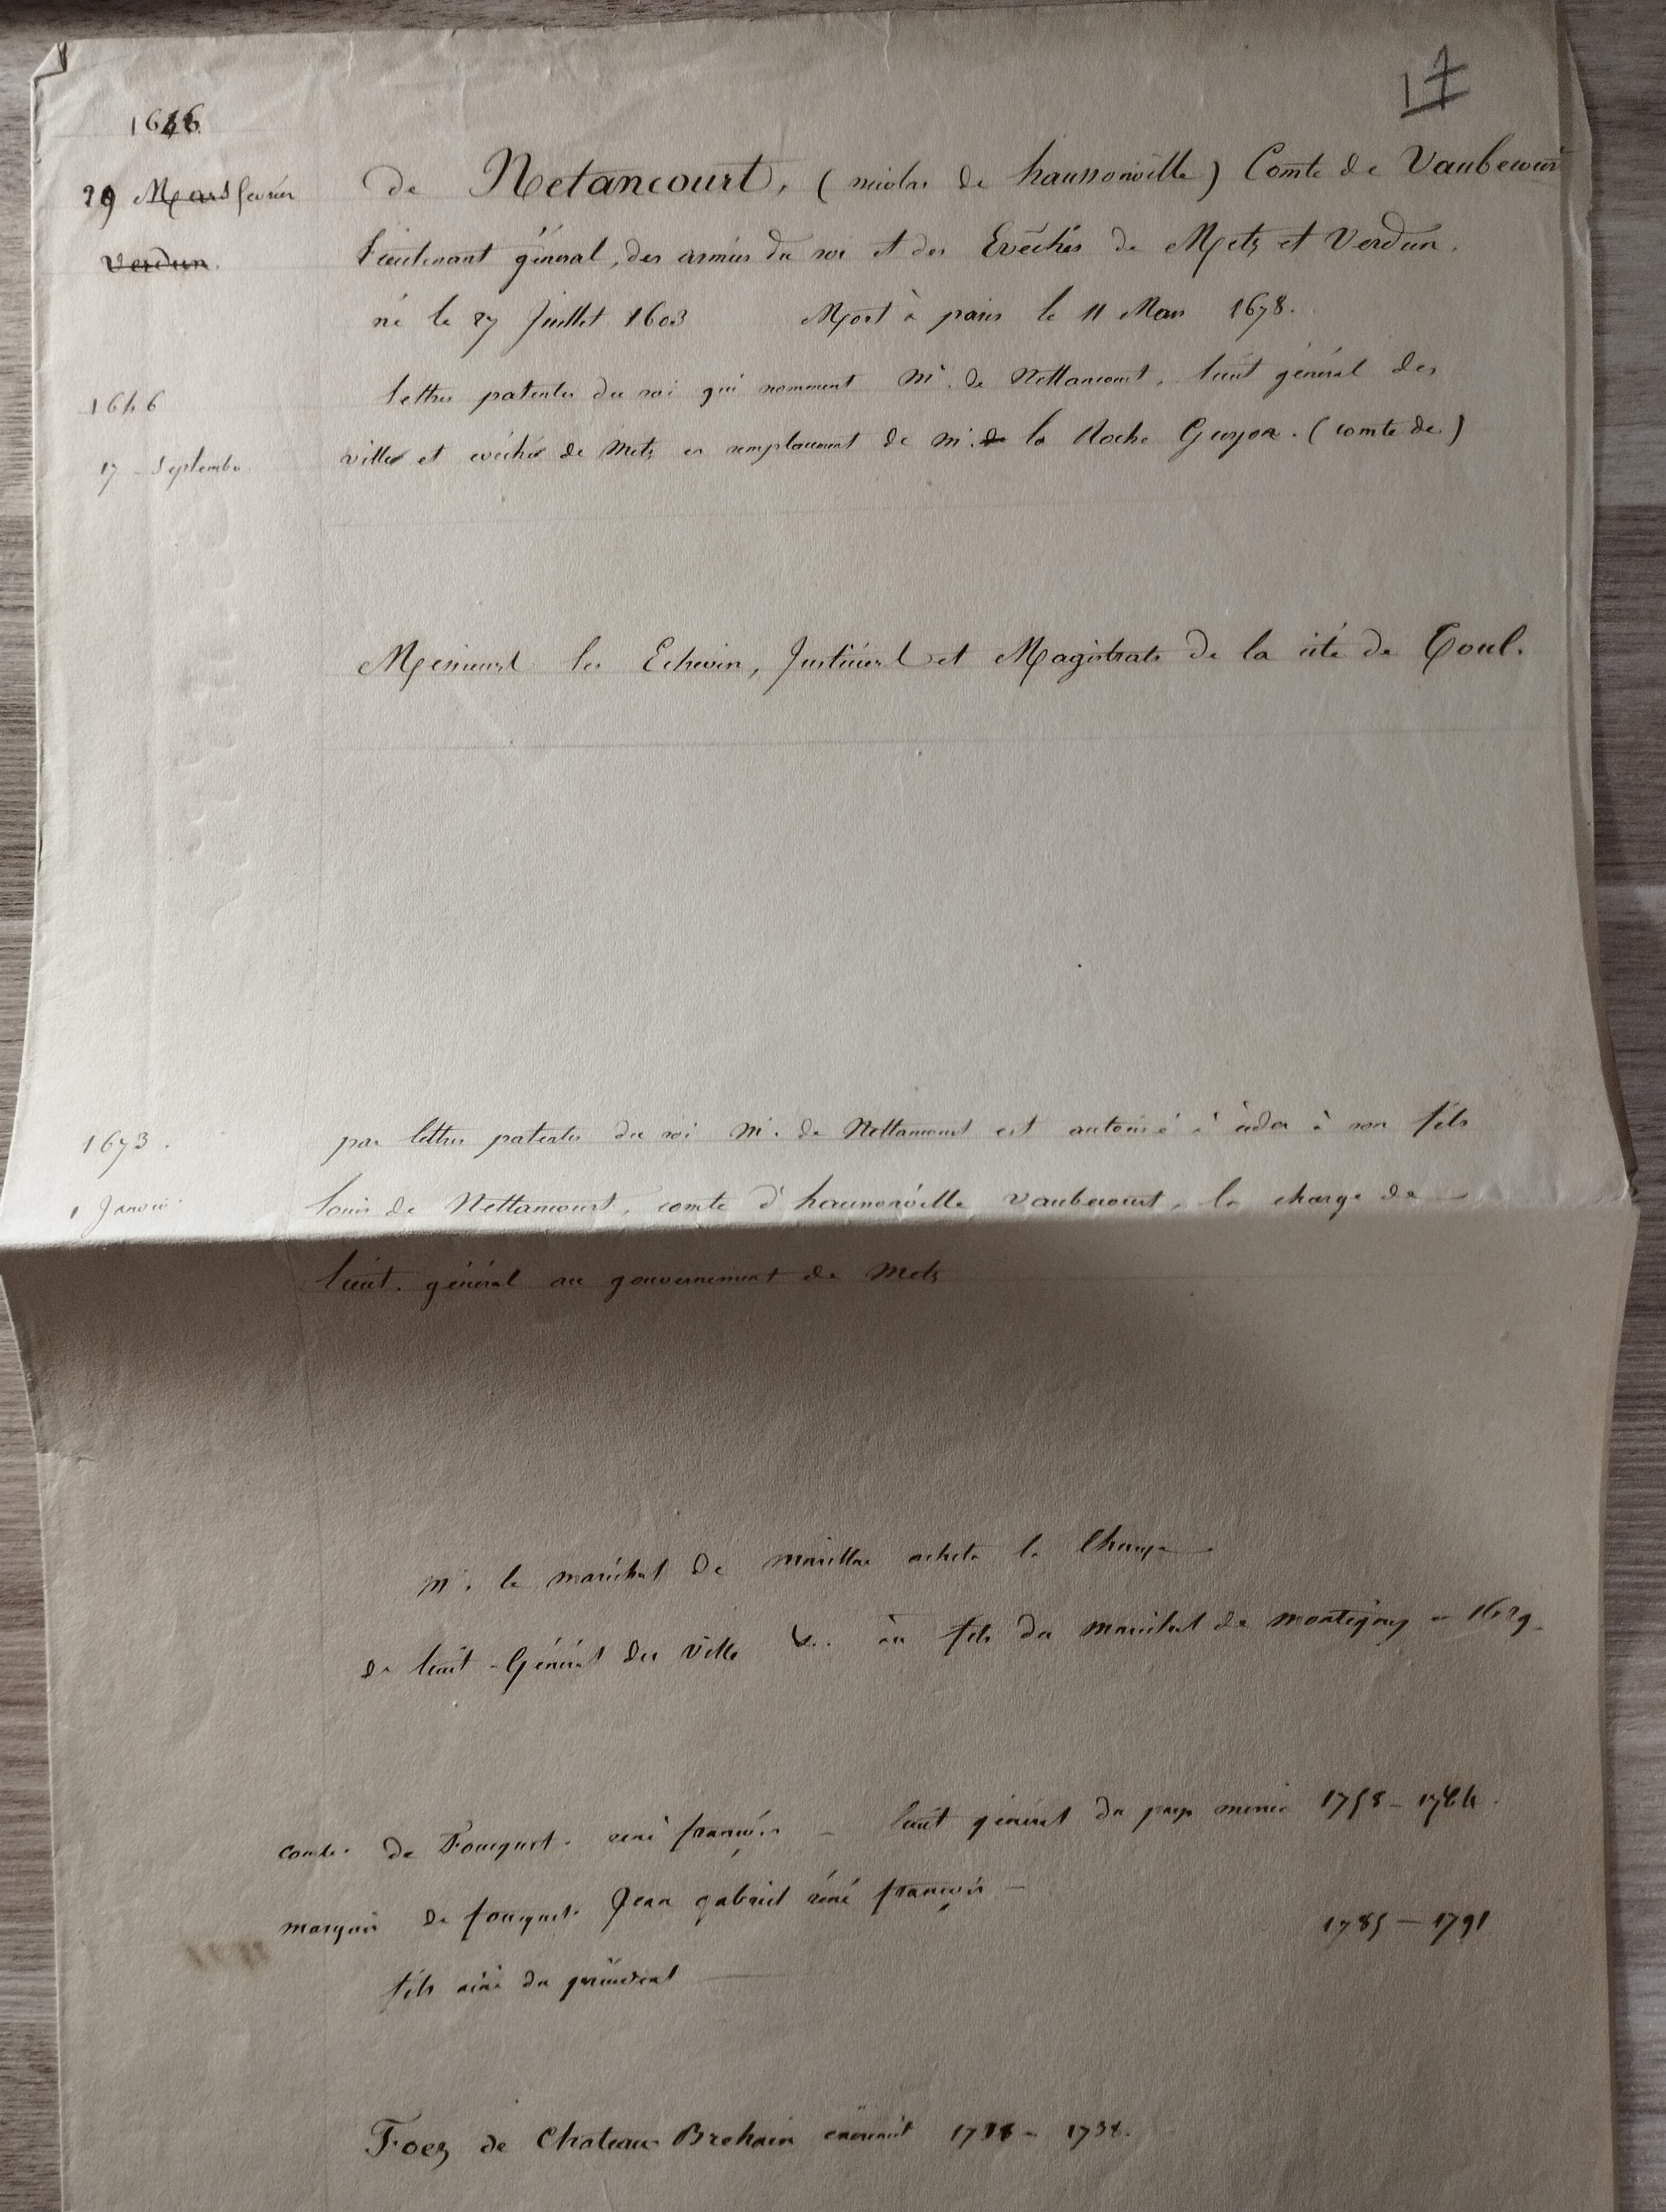 17
1646.
29 Mars fevrier
Verdun.
de Netancourt, (nicolas de haussonville) Comte de Vaubecourt
Lieutenant général, des armées du roi et des Evêchés de Metz et Verdun.
né le 27 Juillet 1603 Mort à paris le 11 Mars 1678.
1646
17 Septembre
lettres patentes du roi qui nomment Mr. de Nettancourt, lieut général des
villes et evéchés de Metz en remplacement de mr. de la Roche Guyon. (comte de)
Messieurs les Echevin, Justiciers et Magistrats de la cité de Toul.
1673.
1 Janvier
par lettres patentes du roi Mr. de Nettancourt est autorisé à céder à son fils
louis de Nettancourt, comte d'haussonville Vaubecourt, la charge de
lieut. général au gouvernement de Metz
Mr. le maréchal de marillac acheta la Charge
de lieut - Général des Ville &.. au fils du maréchal de montigny - 1629.
comte de Fouquet. réné françois - lieut général du pays messin 1758 -
marquis de fouquet. Jean gabriel réné françois - 1785 - 1791
fils ainé du précédent
Foez de Chateau Brehain - 1738.